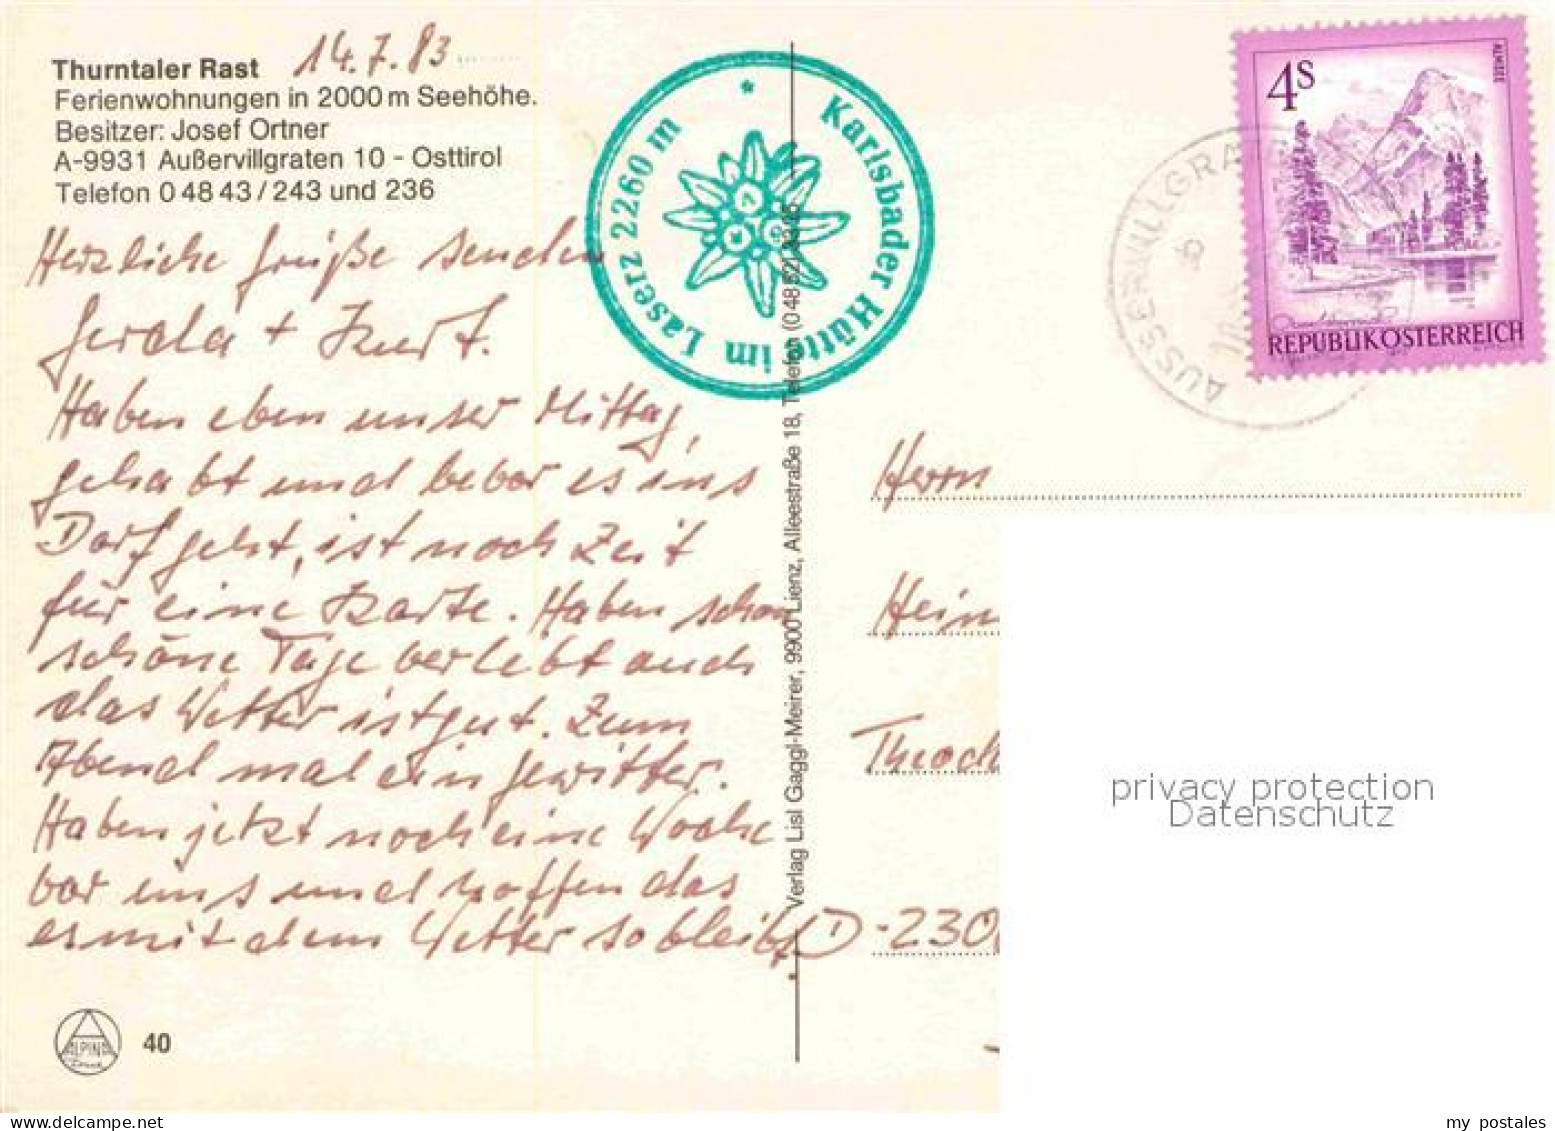 Thurntaler Rast 14.7.83
Ferienwohnungen in 2000 m Seehöhe.
Besitzer: Josef Ortner
A-9931 Außervillgraten 10 - Osttirol
Telefon 0 48 43 / 243 und 236
Herzliche Grüße senden
Gerola + Kurt.
Haben eben unser Mittag
gehabt und bevor es ins
Dorf geht, ist noch Zeit
für eine Karte. Haben schon
schöne Tage verlebt auch
das Wetter ist gut. Zum
Abend mal ein Gewitter.
Haben jetzt noch eine Woche
vor uns und hoffen das
es mit dem Wetter so bleibt.
ALPINA
Druck
40
Karlsbader Hütte im Laserz 2260 m *
Verlag Lisl Gaggl-Meirer, 9900 Lienz, Alleestraße 18, Telefon (0 48 52)
4S
ALMSEE
REPUBLIK ÖSTERREICH
AUSSERVILLGRA
Herrn
Hein
Theod
D-230
privacy protection
Datenschutz
my postales